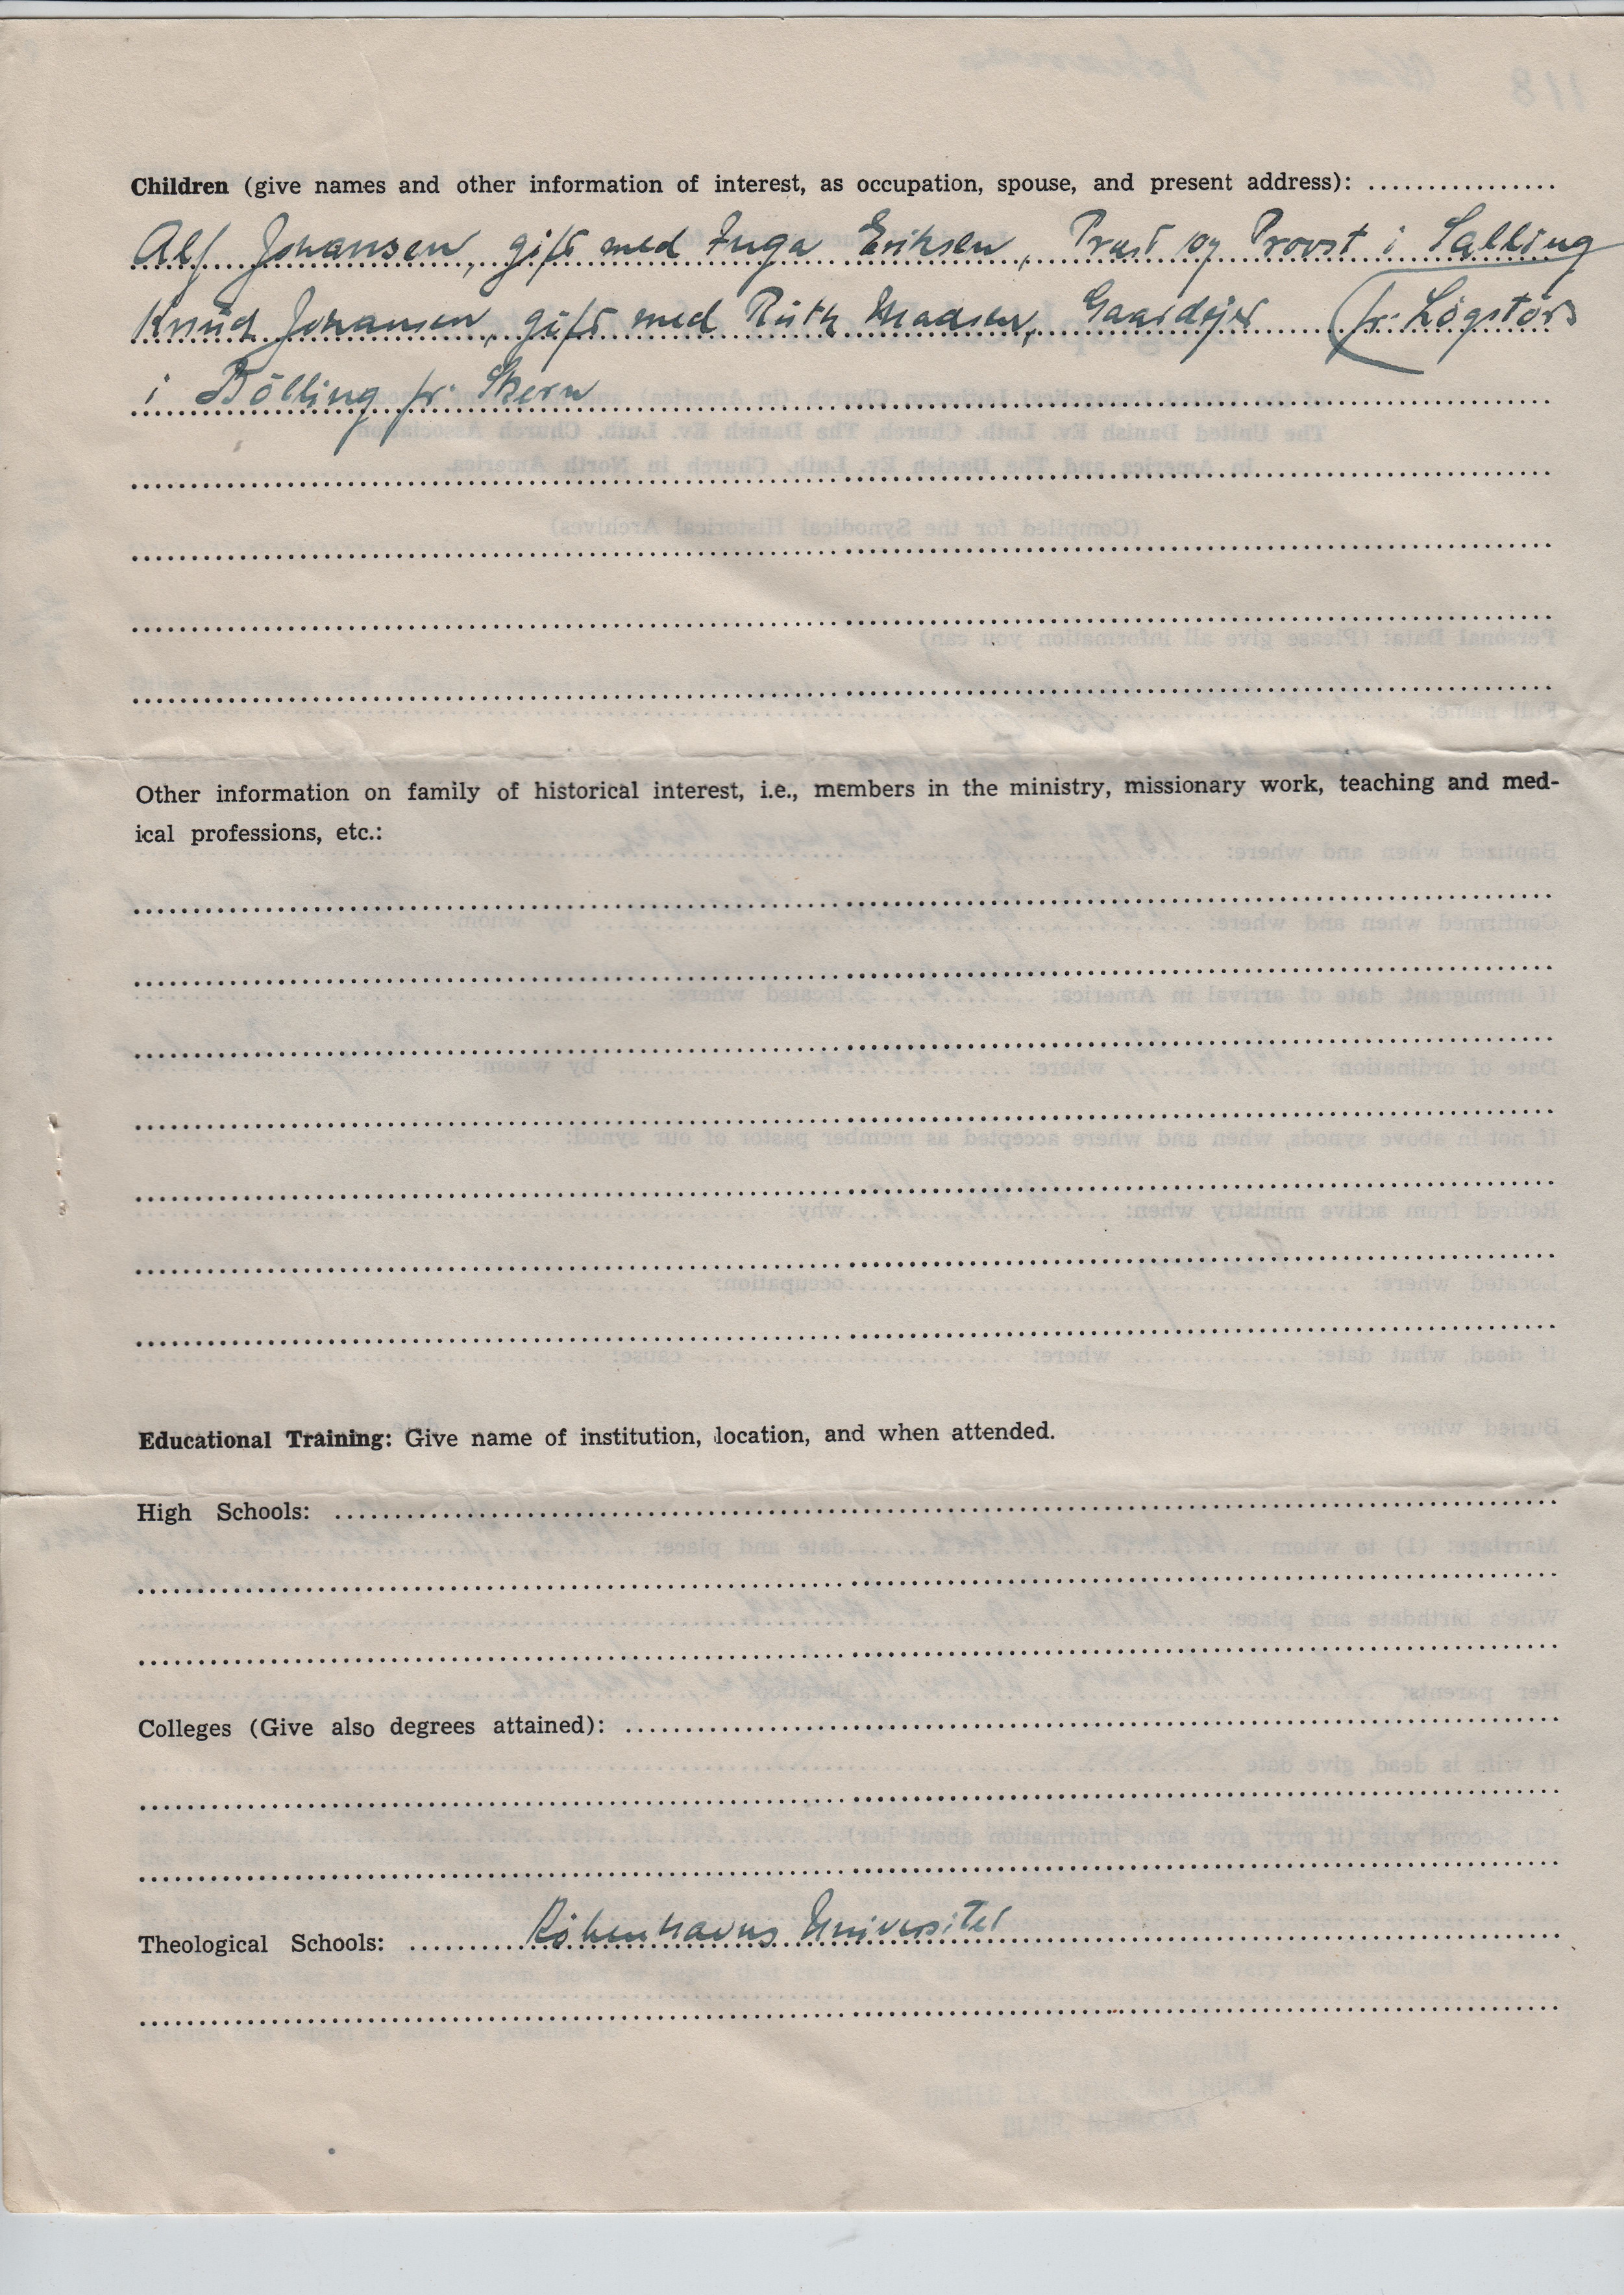 Children (give names and other information of interest, as occupation, spouse, and present address):
Alf Johansen, gift med Inga Eriksen, Præst og Provst i Salling
Knud Johansen, gift med Ruth Madsen, Gaardejer (pr. Løgstør
i Bölling pr. Skern
Other information on family of historical interest, i.e., members in the ministry, missionary work, teaching and med-
ical professions, etc.:
Educational Training: Give name of institution, location, and when attended.
High Schools:
Colleges (Give also degrees attained):
Theological Schools: Københavns Universitet